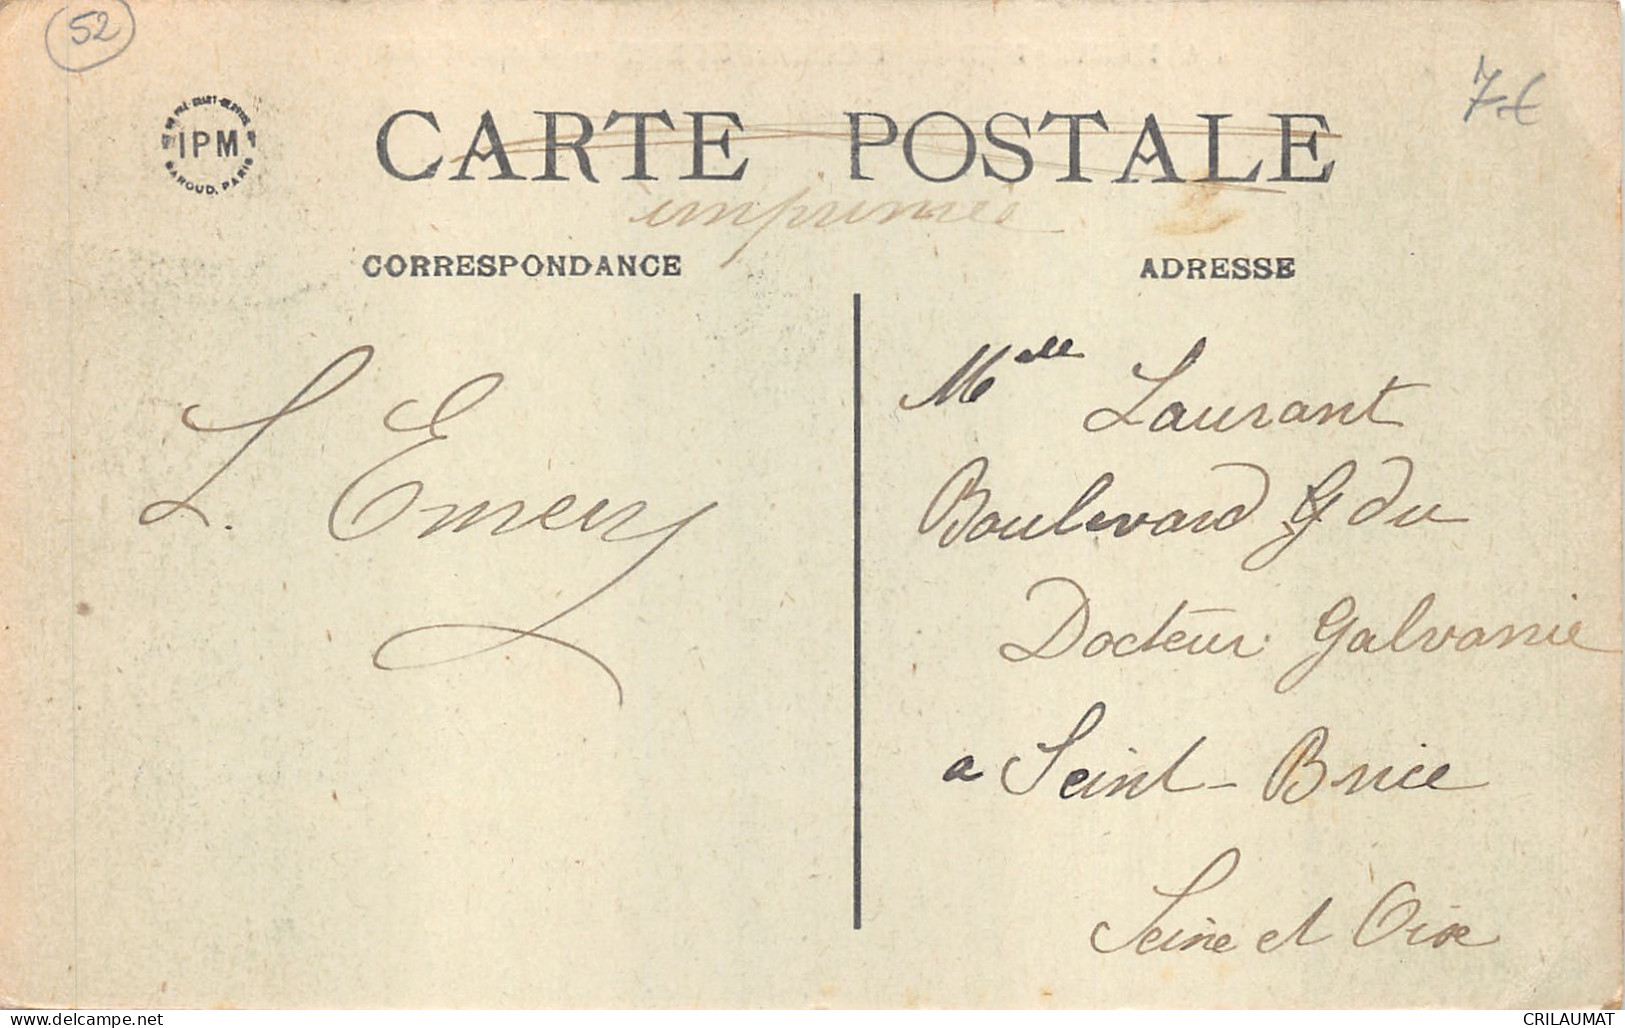 52
7 €
IPM
BAROUD, PARIS
CARTE POSTALE
imprimés
CORRESPONDANCE
ADRESSE
L. Emery
Melle Laurant
Boulevard G du
Docteur Galvanie
a Seint-Brice
Seine et Oise
delcampe.net
CRILAUMAT